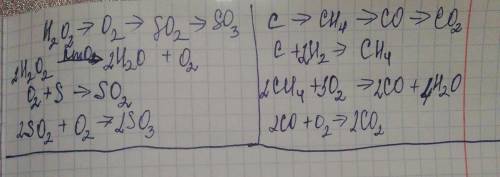 H₂O₂ → O₂ → SO₂ → SO₃
2H₂O₂ →(MnO₂) 2H₂O + O₂
O₂ + S → SO₂
2SO₂ + O₂ → 2SO₃
C → CH₄ → CO → CO₂
C + 2H₂ → CH₄
2CH₄ + 3O₂ → 2CO + 4H₂O
2CO + O₂ → 2CO₂